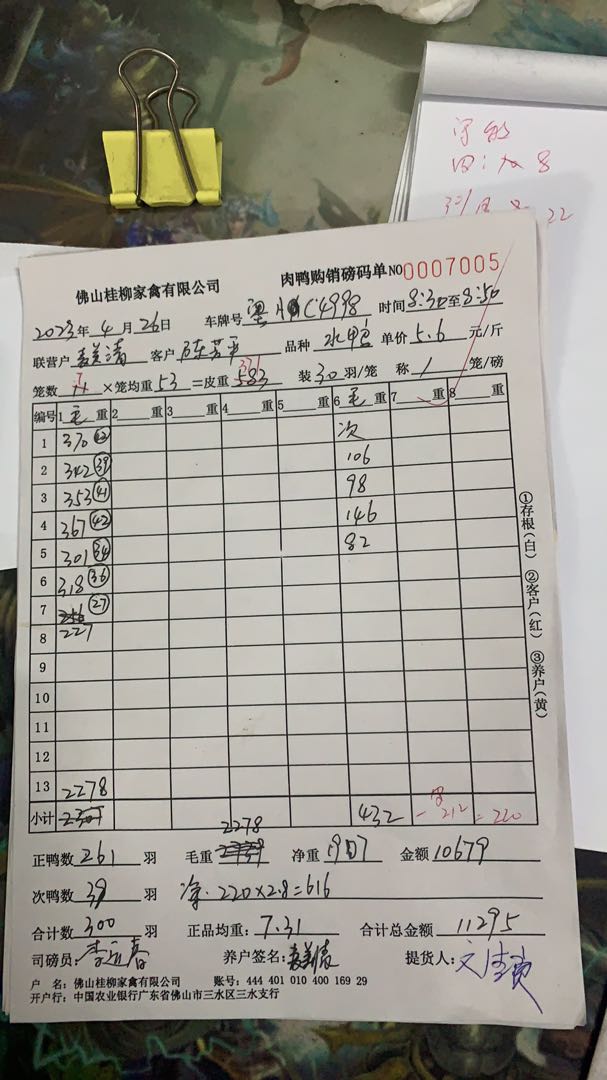 四:8
佛山桂柳家禽有限公司 肉鸭购销磅码单 NO 0007005
2023年4月26日 车牌号 C4998 时间8:30至8:50
联营户 客户 品种 水鸭 单价5.6元/斤
笼数 7 ×笼均重53=皮重 371 583 装30羽/笼 称1笼/磅
编号 1毛重 2重 3重 4重 5重 6毛重 7重 8重
1 370 42 次
2 342 39 106
3 353 41 98
4 367 42 146
5 301 34 82
6 318 36
7 27
8 227
9
10
11
12
13 2278
小计 432 - 212 = 220
2278
正鸭数 261 羽 毛重 净重 1907 金额 10679
次鸭数 39 羽 净.220×2.8=616
合计数 300 羽 正品均重:7.31 合计总金额 11295
司磅员: 养户签名: 提货人:
户 名:佛山桂柳家禽有限公司 账号:444 401 010 400 169 29
开户行:中国农业银行广东省佛山市三水区三水支行
①存根(白) ②客户(红) ③养户(黄)